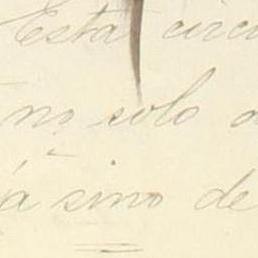 Esta circu
no solo a
á sino de